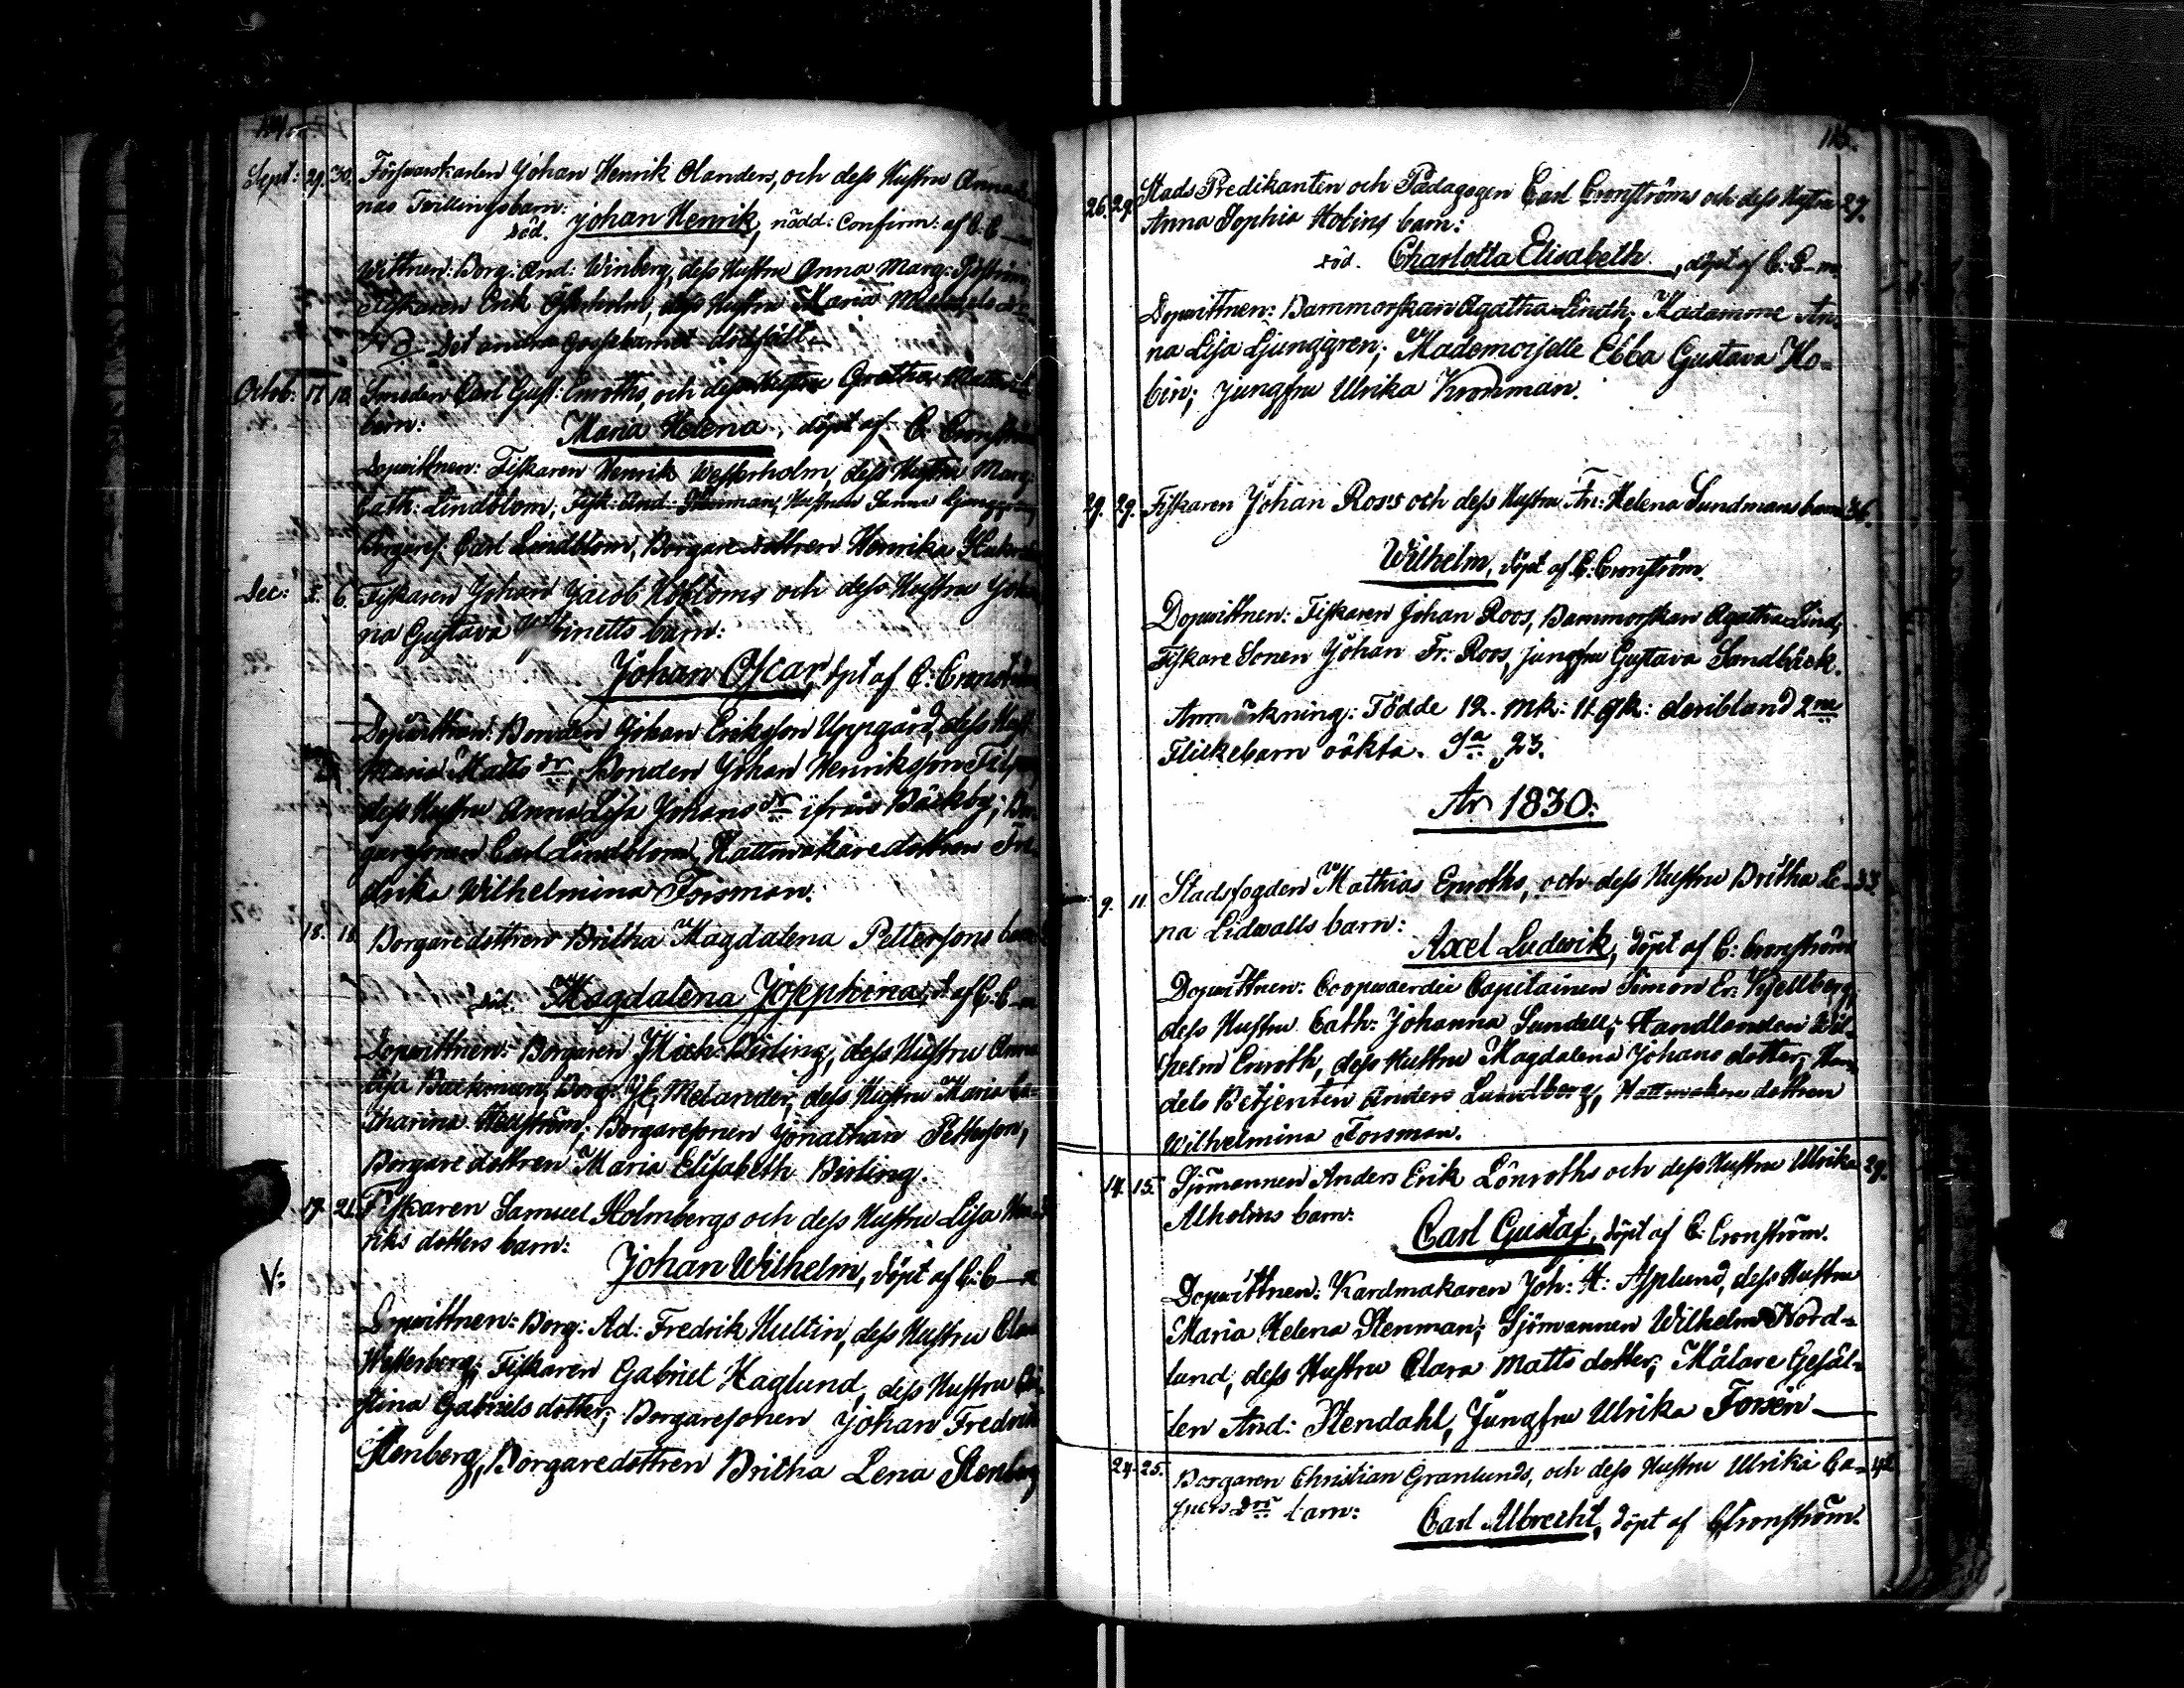 Sept: 29. 30. Förswarskarlen Johan Henrik Olanders, och dess Hustru Anna
nas Twillingsbarn:
död. Johan Henrik, nödd: Confirm: af C. C—m
Wittnen: Borg: And: Winberg, dess Hustru Anna Marg: Sjöström,
Fiskaren Erik Österholm, dess Hustru Maria
NB. Det andra Gossebarnet dödfödt.
Octob: 17. 18. Smeden Carl Gust: Enroths, och dess Hustru Gretha
barn: Maria Helena, döpt af C. Cronström
Dopwittnen: Fiskaren Henrik Westerholm, dess Hustru Marg:
Cath: Lindblom; Fisk: And: Stenman, Hustrun Sanna Ljunggren,
Borgares. Carl Lindblom, Borgare dottren Henrika
Dec: 5. 6. Fiskaren Johan Jacob Höbloms och dess Hustru Johan
na Gustava barn:
Johan Oscar, döpt af C: Cronström
Dopwittnen: Bonden Johan Eriksson Uppgård, dess Hust:
Maria Matts dr; Bonden Johan Henriksson
dess Hustru Anna Lisa Johans dr ifrån Bäckby; Bor-
garesonen Carl Lindblom, Hattmakaredottren Fre-
drika Wilhelmina Forsman.
18. 18. Borgaredottren Britha Magdalena Pettersons barn
död. Magdalena Josephina, d. af C: C—m
Dopwittnen: Borgaren Mich: Birling, dess Hustru Anna
Lisa Backman, Borg: Melander, dess Hustru Maria Ca-
tharina Hellström; Borgaresonen Jonathan Petterson,
Borgare dottren Maria Elisabeth Birling.
19. 21. Fiskaren Samuel Holmbergs och dess Hustru Lisa Hen-
riks dotters barn:
V: Johan Wilhelm, döpt af C: C—m
Dopwittnen: Borg: Ad: Fredrik Hultin, dess Hustru Clara
Westerberg; Fiskaren Gabriel Haglund, dess Hustru Chri-
stina Gabrielsdotter; Borgaresonen Johan Fredrik
Stenberg, Borgaredottren Britha Lena Stenberg
115.
26. 29. Stads Predikanten och Pädagogen Carl Cronströms och dess Hustru 29.
Anna Sophia Hobins barn:
död. Charlotta Elisabeth, döpt af C. C—m
Dopwittnen: Barnmorskan Agatha Lindh; Madamme An-
na Lisa Ljunggren; Mademoiselle Ebba Gustava Ho-
bin; Jungfru Ulrika Kronman.
29. 29. Fiskaren Johan Roos och dess Hustru Fr: Helena Sundmans barn 36.
Wilhelm, döpt af C: Cronström.
Dopwittnen: Fiskaren Johan Roos, Barnmorskan Agatha Lind,
Fiskare Sonen Johan Fr: Roos, Jungfru Gustava Sandbäck.
Anmärkning: Födde 12. mk: 11. qk: deribland 2ne
Flickebarn oäkta. Sa 23.
År 1830:
9. 11. Stadsfogden Mathias Enroths, och dess Hustru Britha Le- 33.
na Lidwalls barn:
Axel Ludvik, döpt af C: Cronström
Dopwittnen: Coopwaerdie Capitainen Simon Er: Kjellberg,
dess Hustru Cath: Johanna Sundell; Handlanden Wil-
helm Enroth, dess Hustru Magdalena Johans dotter; Han-
dels Betjenten Anders Lundberg, Hattmakare dottren
Wilhelmina Forsman.
14. 15. Sjömannen Anders Erik Lönroths och dess Hustru Ulrika 29.
Alholms barn:
Carl Gustaf, döpt af C. Cronström.
Dopwittnen: Kardmakaren Joh: H: Asplund, dess Hustru
Maria Helena Stenman; Sjömannen Wilhelm Nord-
lund, dess Hustru Clara Matts dotter; Målare Gesäl-
len And: Stendahl, Jungfru Ulrika Forsén
24. 25. Borgaren Christian Granlunds, och dess Hustru Ulrika Ca- 42
spers drs barn:
Carl Albrecht, döpt af C. Cronström.